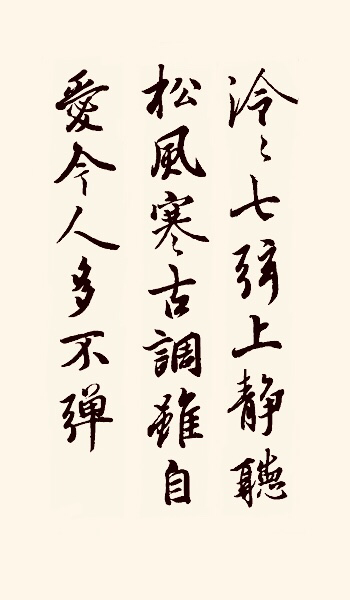 泠〻七弦上靜聽
松風寒古調雖自
愛今人多不彈